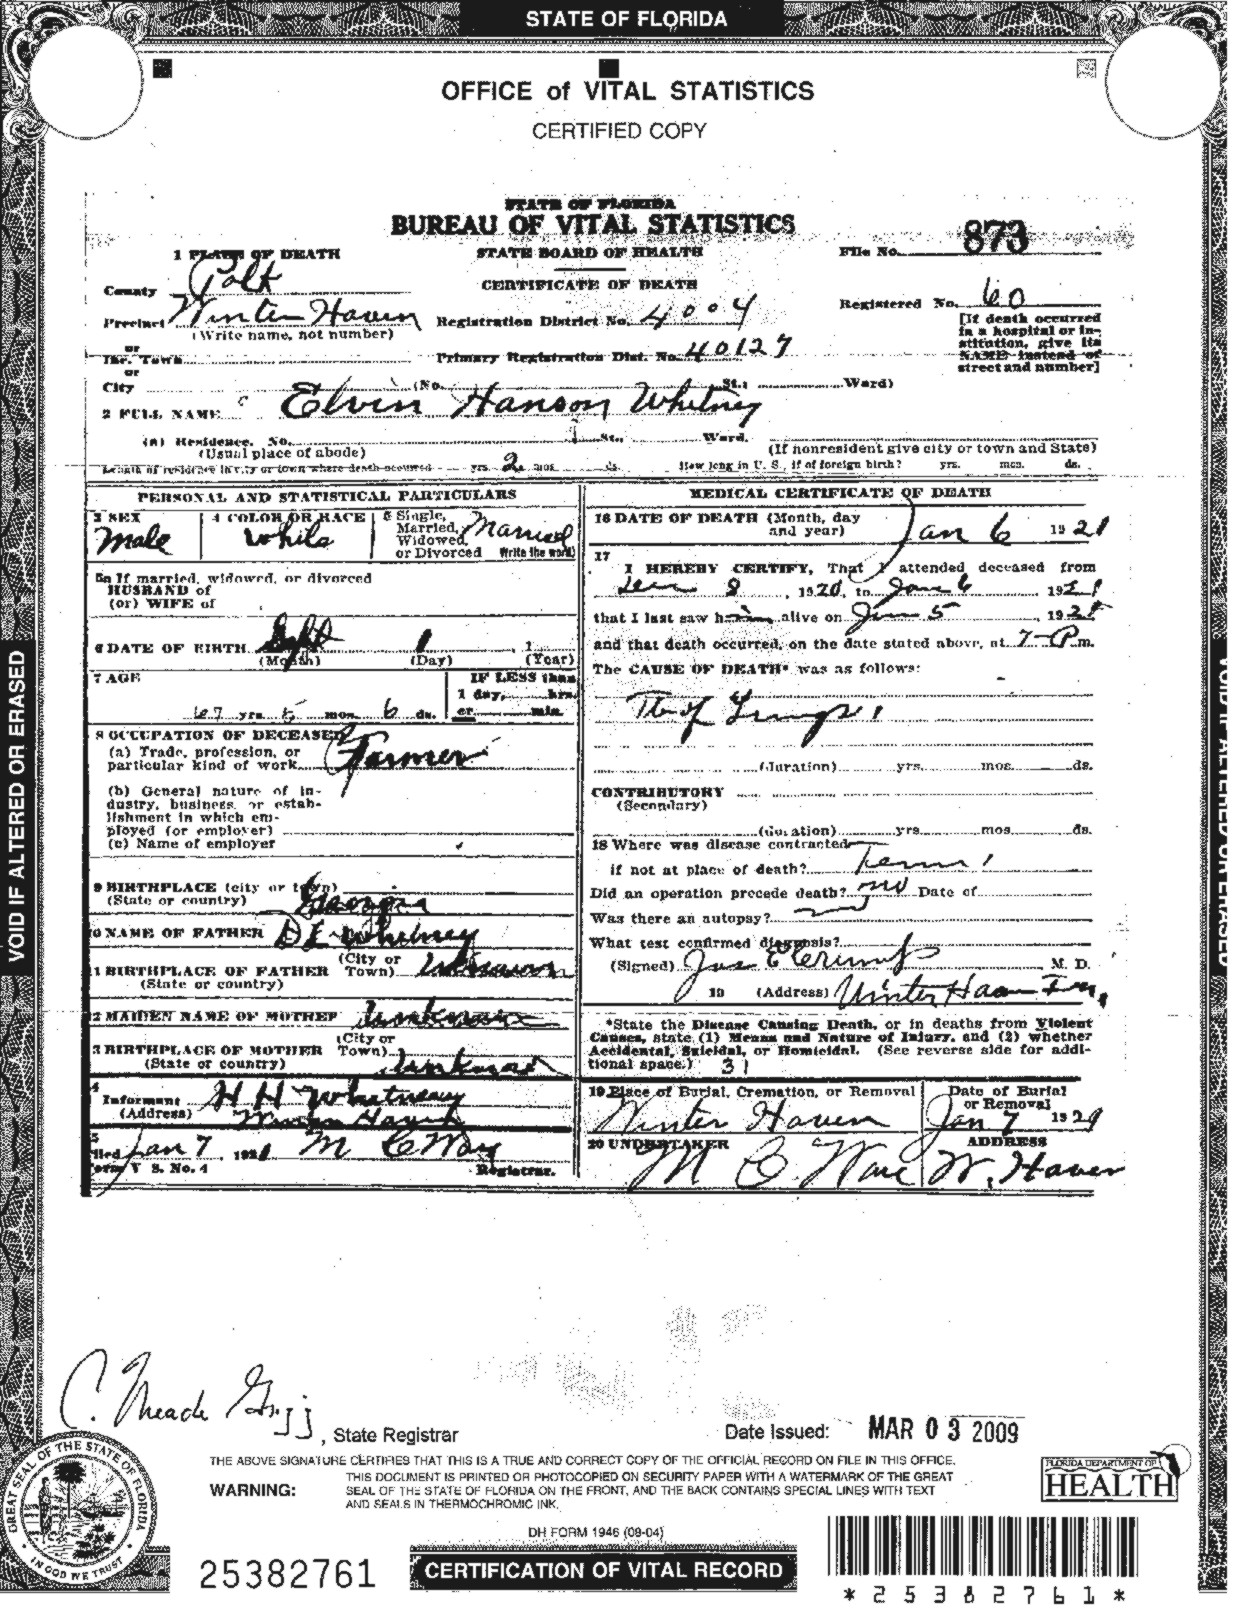 STATE OF FLORIDA
OFFICE of VITAL STATISTICS
CERTIFIED COPY
STATE OF FLORIDA
BUREAU OF VITAL STATISTICS
STATE BOARD OF HEALTH
CERTIFICATE OF DEATH
File No. 873
1 PLACE OF DEATH
County Polk
Precinct Winter Haven
(Write name, not number)
Registration District No. 4004
Registered No. 60
[If death occurred in a hospital or institution, give its NAME instead of street and number]
or
Inc. Town
Primary Registration Dist. No. 40127
or
City (No. St.; Ward)
2 FULL NAME Elvin Hanson Whitney
(a) Residence. No. St., Ward.
(Usual place of abode) (If nonresident give city or town and State)
Length of residence in city or town where death occurred yrs. 2 mos. ds. How long in U. S., if of foreign birth? yrs. mos. ds.
PERSONAL AND STATISTICAL PARTICULARS
3 SEX Male
4 COLOR OR RACE White
5 Single, Married, Widowed, or Divorced Write the word) Married
5a If married, widowed, or divorced
HUSBAND of
(or) WIFE of
6 DATE OF BIRTH Sept 1, 1
(Month) (Day) (Year)
7 AGE 67 yrs. 5 mos. 6 ds.
IF LESS than
1 day, hrs.
or min.
8 OCCUPATION OF DECEASED
(a) Trade, profession, or
particular kind of work Farmer
(b) General nature of in-
dustry, business, or estab-
lishment in which em-
ployed (or employer)
(c) Name of employer
9 BIRTHPLACE (city or town)
(State or country) Georgia
10 NAME OF FATHER D E Whitney
11 BIRTHPLACE OF FATHER (City or Town) Unknown
(State or country)
12 MAIDEN NAME OF MOTHER Unknown
13 BIRTHPLACE OF MOTHER (City or Town)
(State or country) Unknown
Informant H H Whitney
(Address) Winter Haven
Filed Jan 7, 1921 M C Ware
Registrar.
Form V. S. No. 4
MEDICAL CERTIFICATE OF DEATH
16 DATE OF DEATH (Month, day and year) Jan 6 1921
17
I HEREBY CERTIFY, That I attended deceased from
8, 1920, to Jan 6, 1921
that I last saw him alive on Jan 5, 1921
and that death occurred, on the date stated above, at 7 P.m.
The CAUSE OF DEATH* was as follows:
Tb of Lungs
(duration) yrs. mos. ds.
CONTRIBUTORY
(Secondary)
(duration) yrs. mos. ds.
18 Where was disease contracted
if not at place of death? Tenn
Did an operation precede death? no Date of
Was there an autopsy?
What test confirmed diagnosis?
(Signed) Jas E Crump M. D.
19 (Address) Winter Haven Fla.
*State the Disease Causing Death, or in deaths from Violent
Causes, state (1) Means and Nature of Injury, and (2) whether
Accidental, Suicidal, or Homicidal. (See reverse side for addi-
tional space.) 31
19 Place of Burial, Cremation, or Removal
Winter Haven
Date of Burial or Removal
Jan 7 1921
20 UNDERTAKER
M C Ware
ADDRESS
W. Haven
VOID IF ALTERED OR ERASED
VOID IF ALTERED OR ERASED
C. Meade Grigg, State Registrar
Date Issued: MAR 03 2009
THE ABOVE SIGNATURE CERTIFIES THAT THIS IS A TRUE AND CORRECT COPY OF THE OFFICIAL RECORD ON FILE IN THIS OFFICE.
WARNING: THIS DOCUMENT IS PRINTED OR PHOTOCOPIED ON SECURITY PAPER WITH A WATERMARK OF THE GREAT
SEAL OF THE STATE OF FLORIDA ON THE FRONT, AND THE BACK CONTAINS SPECIAL LINES WITH TEXT
AND SEALS IN THERMOCHROMIC INK.
FLORIDA DEPARTMENT OF
HEALTH
GREAT SEAL OF THE STATE OF FLORIDA
IN GOD WE TRUST
DH FORM 1946 (08-04)
25382761
CERTIFICATION OF VITAL RECORD
*25382761*